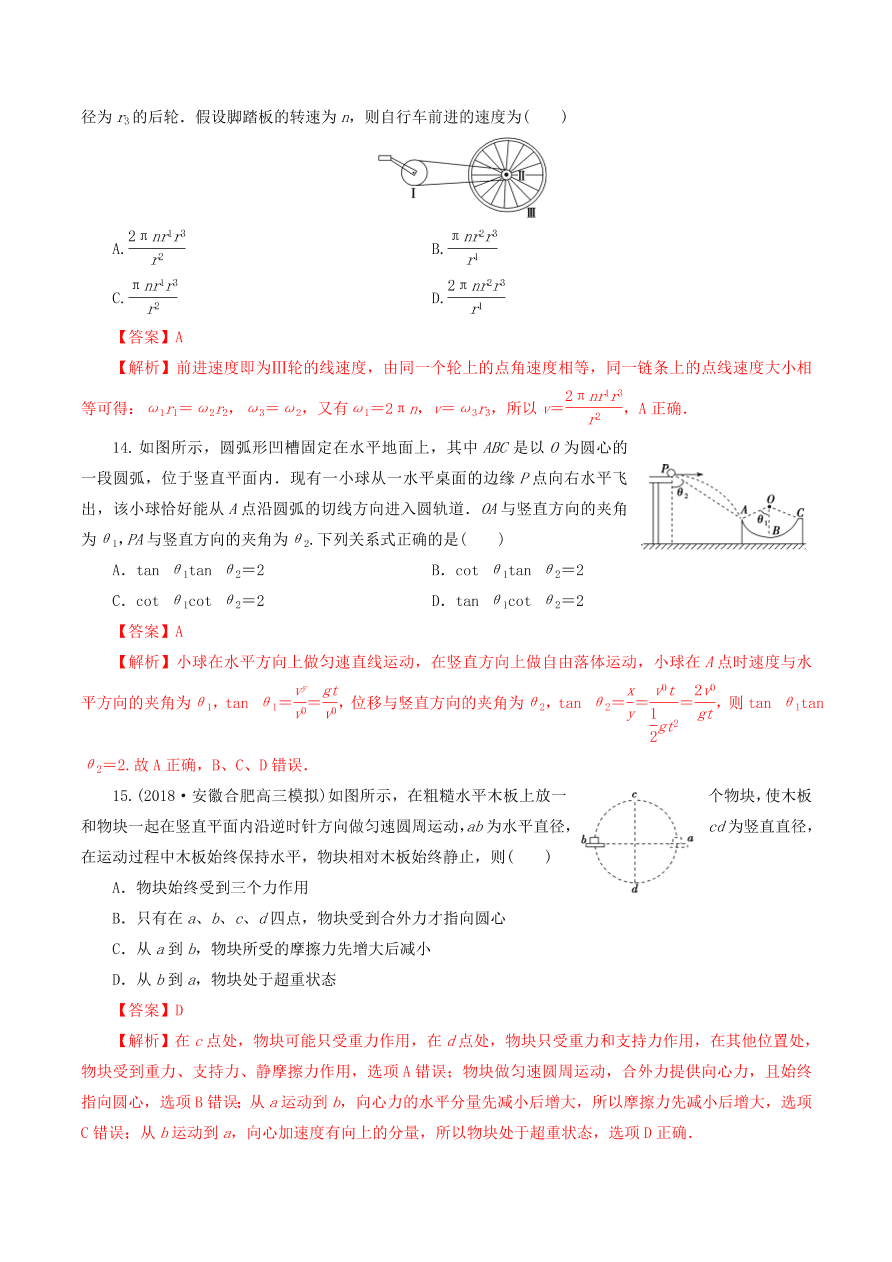 径为 r₃ 的后轮．假设脚踏板的转速为 n，则自行车前进的速度为(　　)
Ⅰ Ⅱ Ⅲ
A.2πnr1r3/r2　　B.πnr2r3/r1
C.πnr1r3/r2　　D.2πnr2r3/r1
【答案】A
【解析】前进速度即为Ⅲ轮的线速度，由同一个轮上的点角速度相等，同一链条上的点线速度大小相
等可得：ω₁r₁＝ω₂r₂，ω₃＝ω₂，又有 ω₁＝2πn，v＝ω₃r₃，所以 v＝2πnr1r3/r2，A 正确．
14. 如图所示，圆弧形凹槽固定在水平地面上，其中 ABC 是以 O 为圆心的
一段圆弧，位于竖直平面内．现有一小球从一水平桌面的边缘 P 点向右水平飞
出，该小球恰好能从 A 点沿圆弧的切线方向进入圆轨道．OA 与竖直方向的夹角
为 θ₁，PA 与竖直方向的夹角为 θ₂.下列关系式正确的是(　　)
P θ₂ A O C θ₁ B
A．tan θ₁tan θ₂＝2　　B．cot θ₁tan θ₂＝2
C．cot θ₁cot θ₂＝2　　D．tan θ₁cot θ₂＝2
【答案】A
【解析】小球在水平方向上做匀速直线运动，在竖直方向上做自由落体运动，小球在 A 点时速度与水
平方向的夹角为 θ₁，tan θ₁＝vy/v0＝gt/v0，位移与竖直方向的夹角为 θ₂，tan θ₂＝x/y＝v0t/(1/2 gt2)＝2v0/gt，则 tan θ₁tan
θ₂＝2.故 A 正确，B、C、D 错误．
15.(2018·安徽合肥高三模拟)如图所示，在粗糙水平木板上放一个物块，使木板
和物块一起在竖直平面内沿逆时针方向做匀速圆周运动，ab 为水平直径，cd 为竖直直径，
在运动过程中木板始终保持水平，物块相对木板始终静止，则(　　)
c b a d
A．物块始终受到三个力作用
B．只有在 a、b、c、d 四点，物块受到合外力才指向圆心
C．从 a 到 b，物块所受的摩擦力先增大后减小
D．从 b 到 a，物块处于超重状态
【答案】D
【解析】在 c 点处，物块可能只受重力作用，在 d 点处，物块只受重力和支持力作用，在其他位置处，
物块受到重力、支持力、静摩擦力作用，选项 A 错误；物块做匀速圆周运动，合外力提供向心力，且始终
指向圆心，选项 B 错误；从 a 运动到 b，向心力的水平分量先减小后增大，所以摩擦力先减小后增大，选项
C 错误；从 b 运动到 a，向心加速度有向上的分量，所以物块处于超重状态，选项 D 正确．